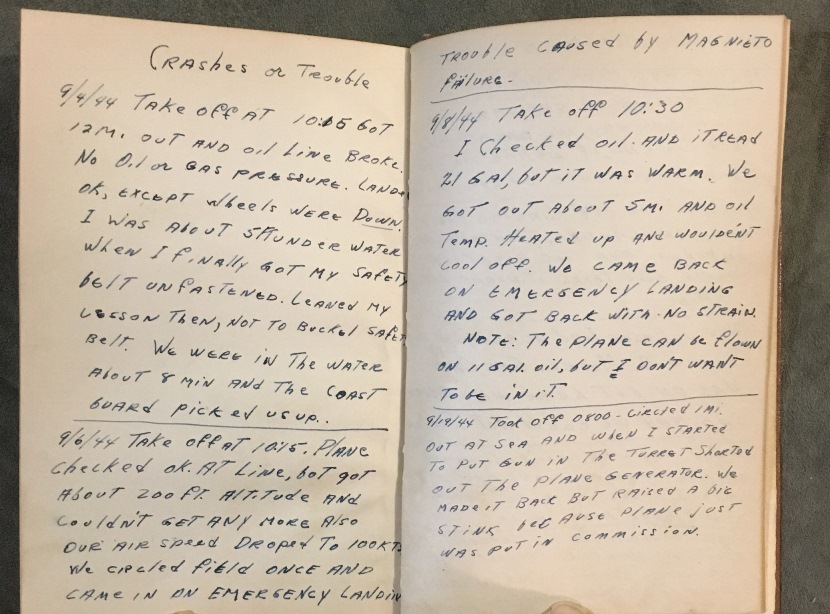 Crashes or Trouble
9/4/44 Take off AT 10:05 GOT
12 M. OUT AND OIL LINE BROKE.
No OIL OR GAS PRESSURE. LANDED
OK, EXCEPT wheels WERE DOWN.
I WAS ABOUT 5 FT UNDER WATER
WHEN I FINALLY GOT MY SAFETY
BELT UNFASTENED. LEANED MY
LESSON THEN, NOT TO BUCKEL SAFETY
BELT. WE WERE IN THE WATER
ABOUT 8 MIN AND THE COAST
GUARD PICKED US UP..
9/6/44 TAKE OFF AT 10:15. PLANE
CHECKED OK. AT LINE, BUT GOT
ABOUT 200 FT. ALTITUDE AND
COULDN'T GET ANY MORE ALSO
OUR AIR SPEED DROPED TO 100KTS
WE CIRCLED FIELD ONCE AND
CAME IN ON EMERGENCY LANDIN
TROUBLE CAUSED by MAGNIETO
FAILURE-
9/8/44 TAKE OFF 10:30
I Checked OIL. AND IT READ
21 GAL, but IT WAS WARM. WE
GOT OUT ABOUT 5 M. AND OIL
TEMP. HEATED UP AND WOULDEN'T
COOL OFF. WE CAME BACK
ON EMERGENCY LANDING
AND GOT BACK WITH NO STRAIN.
NOTE: THE PLANE CAN BE FLOWN
ON 11 GAL. OIL, but I DON'T WANT
TO BE IN IT.
9/19/44 TOOK OFF 0800 - CIRCLED 1 MI.
OUT AT SEA AND WHEN I STARTED
TO PUT GUN IN THE TURRET SHORTED
OUT THE PLANE GENERATOR. WE
MADE IT BACK BUT RAISED A BIG
STINK BECAUSE PLANE JUST
WAS PUT IN COMMISSION.